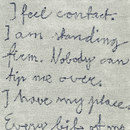 I feel contact.
I am standing
firm. Nobody can
tip me over.
I have my place.
Every bit of me